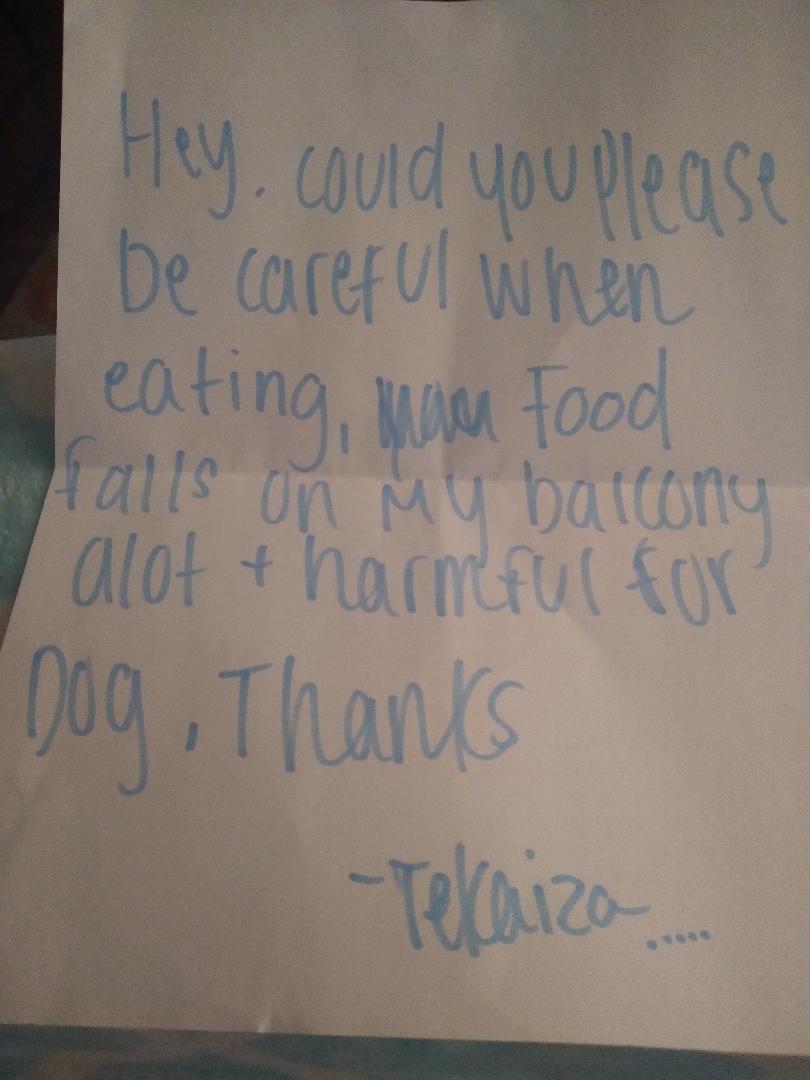 Hey. could you please
be careful when
eating, Food
falls on my balcony
alot + harmful for
Dog, Thanks
-Tekaiza.....